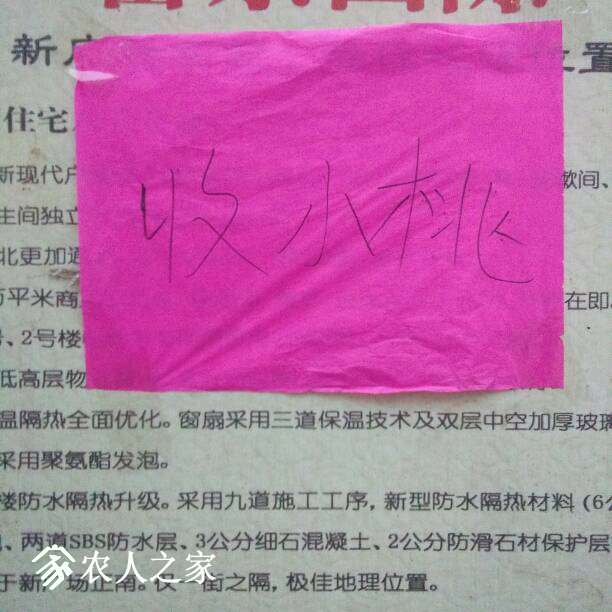 新
置
住宅
收小桃
新现代户
嗽间、
生间独立
北更加通
万平米商
在即
、2号楼
低高层物
温隔热全面优化。窗扇采用三道保温技术及双层中空加厚玻璃
采用聚氨酯发泡。
楼防水隔热升级。采用九道施工工序，新型防水隔热材料（6公
、两道SBS防水层、3公分细石混凝土、2公分防滑石材保护层
于新广场正南。仅一街之隔，极佳地理位置。
农人之家